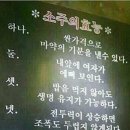 ※소주의효능※
하나. 싼가격으로
마약의 기분을 낼수 있다.
둘. 내앞에 여자가
예뻐 보인다.
셋. 밥을 먹지 않아도
생명 유지가 가능하다.
넷. 전투력이 상승하면
조폭도 두렵지 않게된다